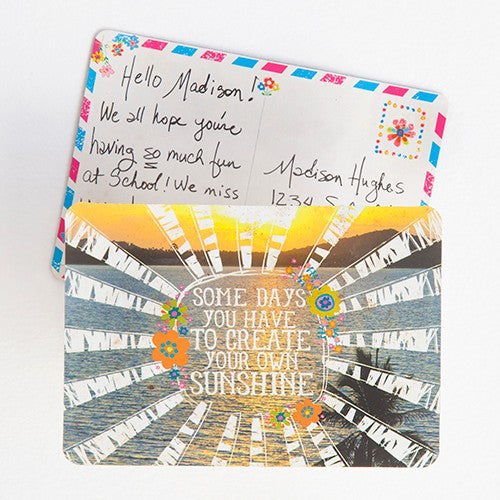 Hello Madison!
We all hope you're
having so much fun
at School! We miss
Madison Hughes
1234 S
SOME DAYS
YOU HAVE
TO CREATE
YOUR OWN
SUNSHINE